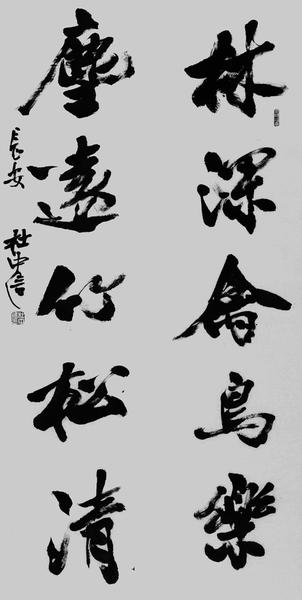 林深禽鳥樂
塵遠竹松清
長安 杜中信